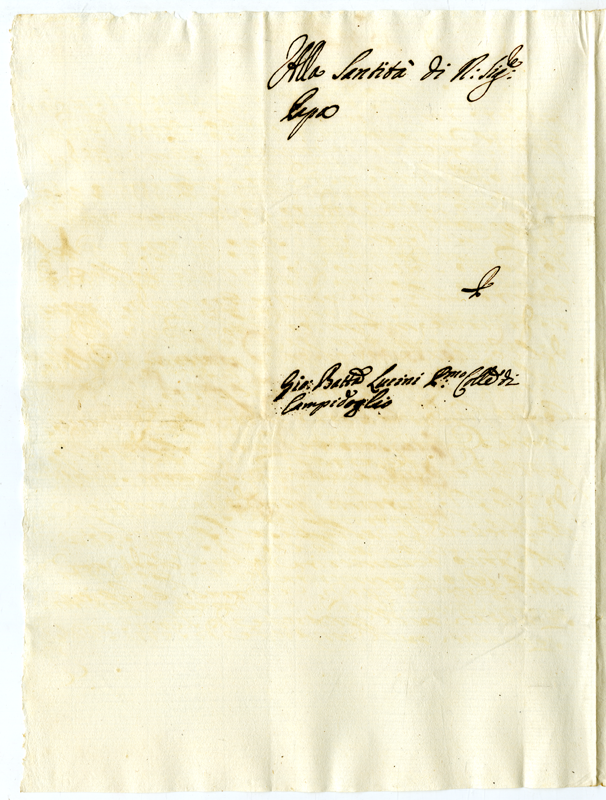 Alla Santità di N: Sig:re
Papa
P
Gio: Batta Lucini P:mo Colle di
Campidoglio